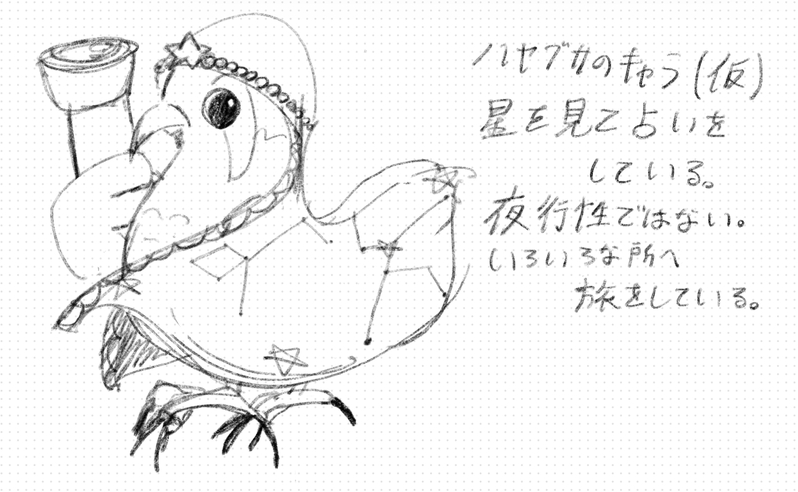 ハヤブサのキャラ(仮)
星を見て占いを
している。
夜行性ではない。
いろいろな所へ
旅をしている。